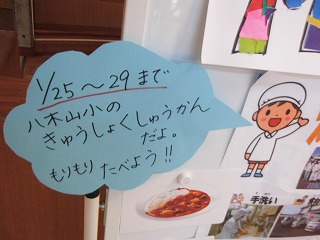 1/25〜29まで
八木山小の
きゅうしょくしゅうかん
だよ。
もりもり たべよう!!
手洗い